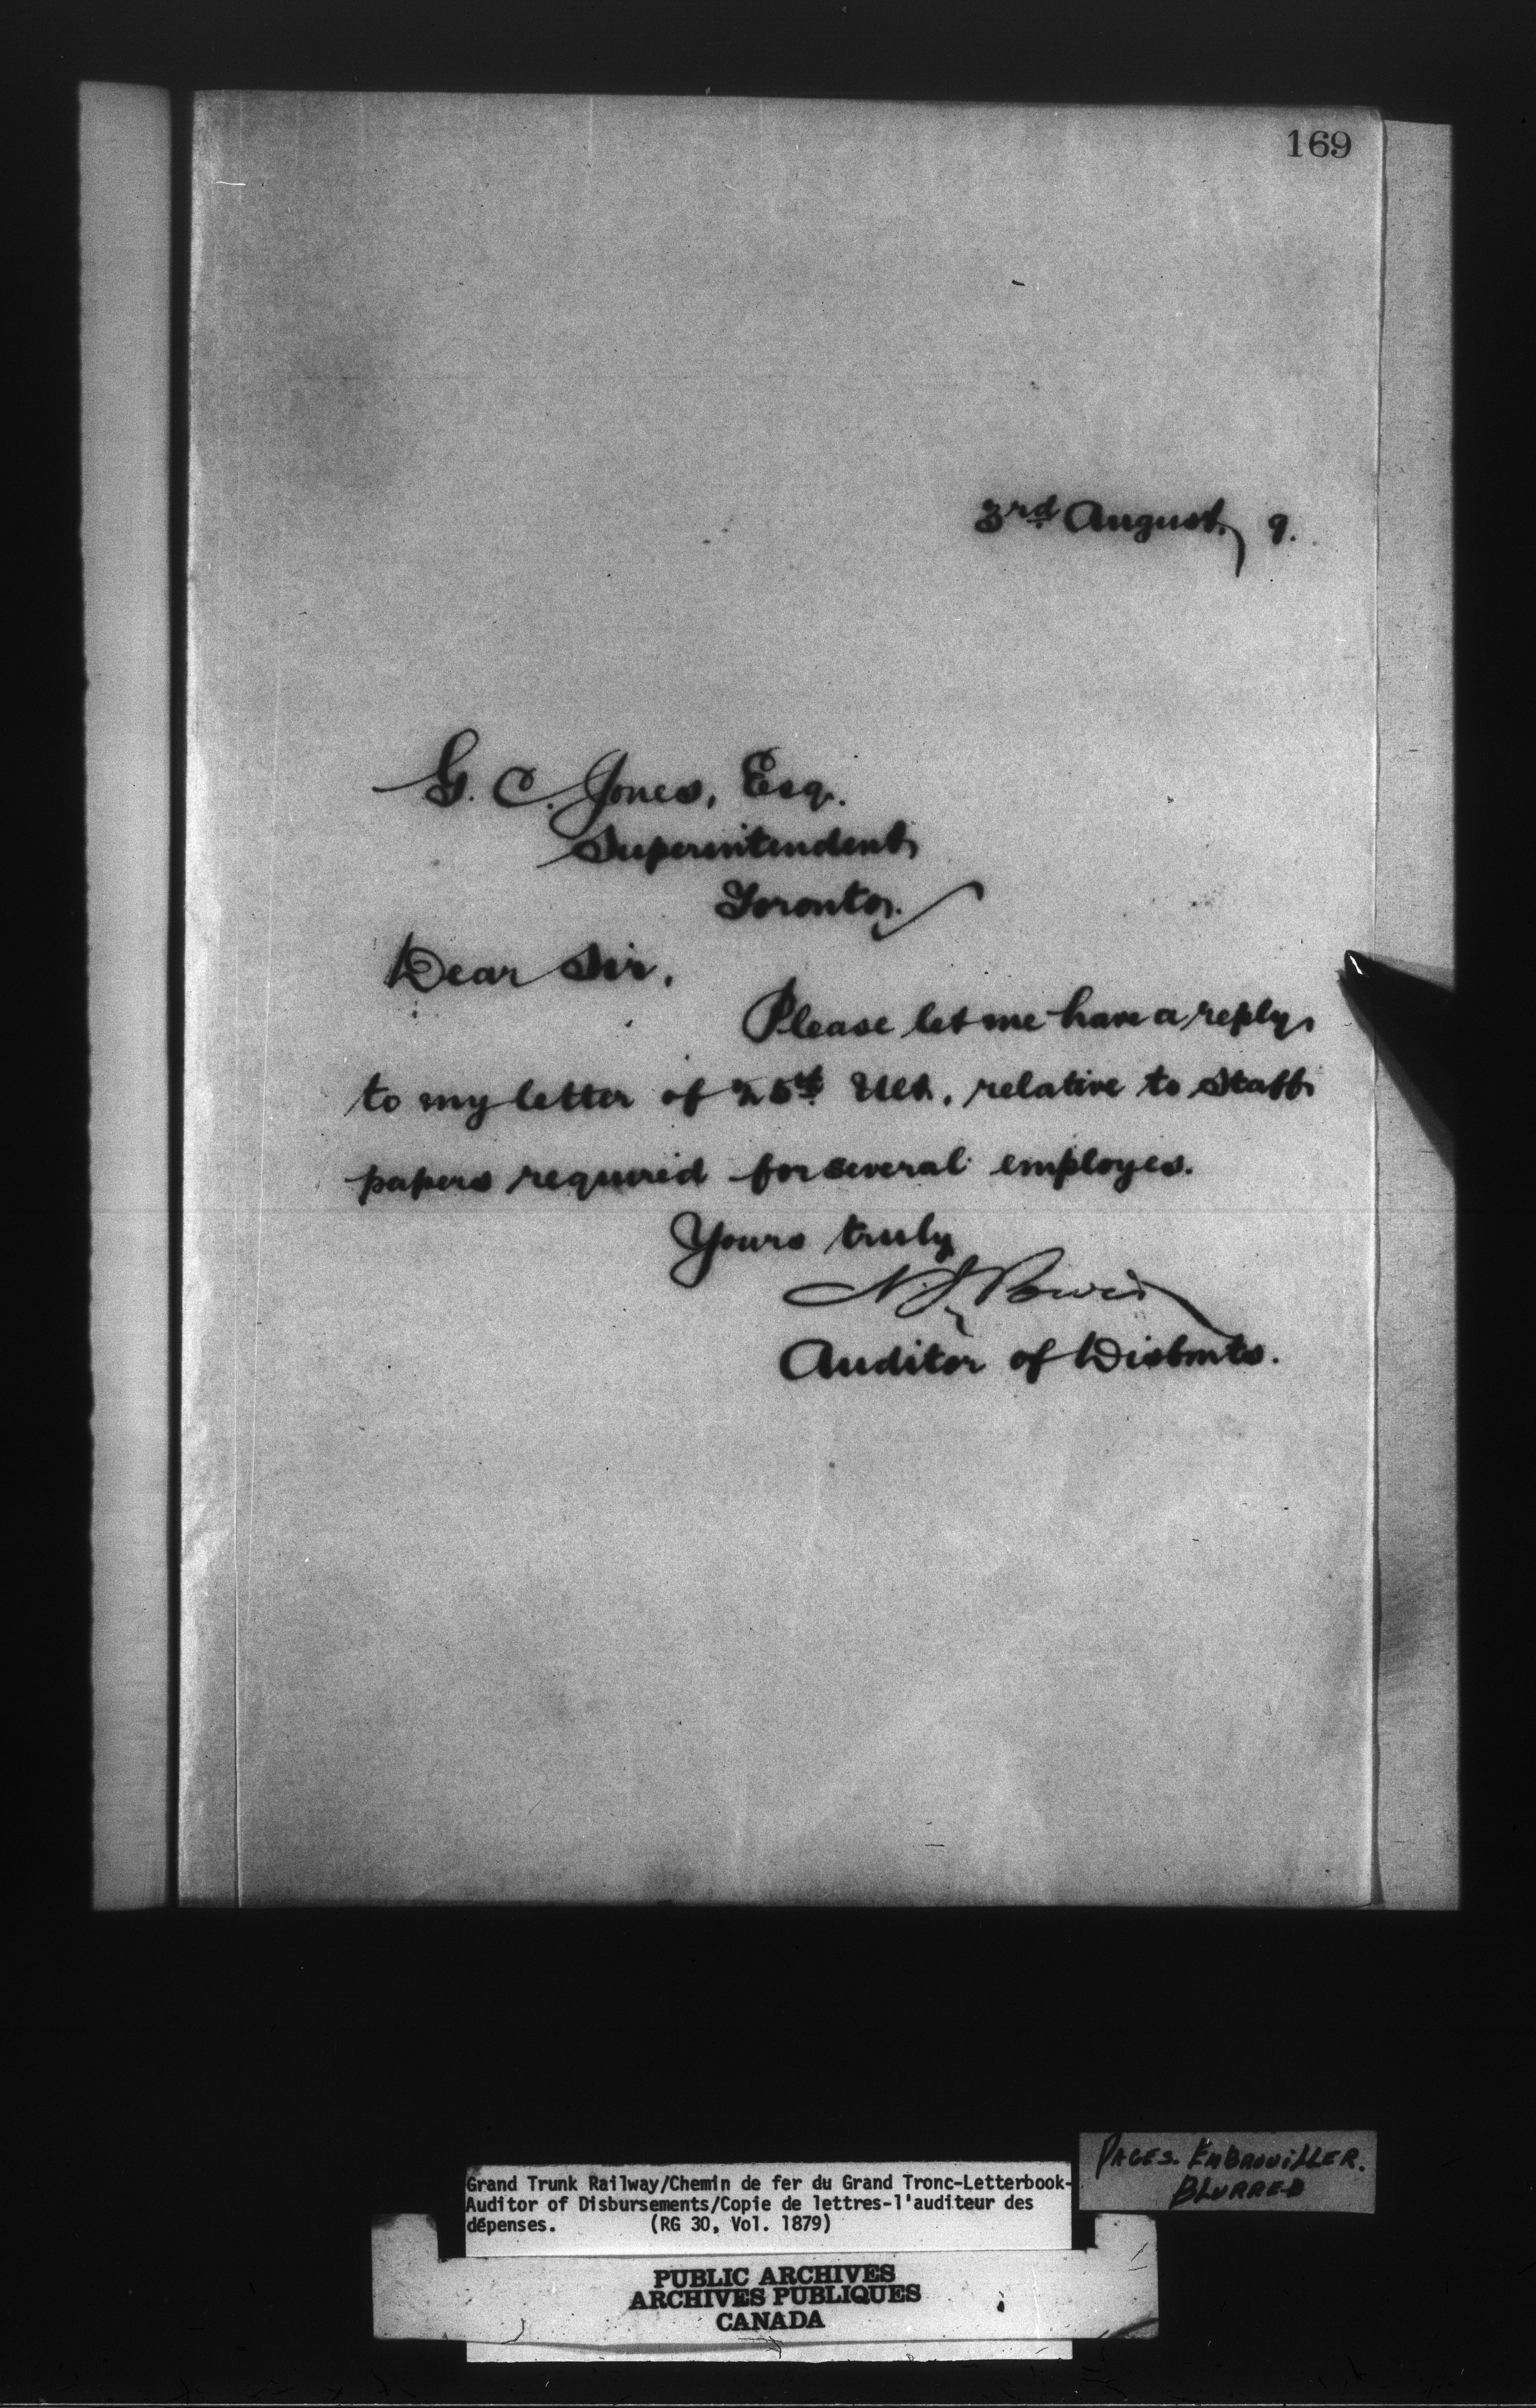 169
3rd August, 9.
G. C. Jones, Esq.
Superintendent
Toronto.
Dear Sir,
Please let me have a reply
to my letter of 25th Ult, relative to Staff
papers required for several employes.
Yours truly
N. J. Power
Auditor of Disbmts.
PAGES. EMBROUILLER.
BLURRED
Grand Trunk Railway/Chemin de fer du Grand Tronc-Letterbook-
Auditor of Disbursements/Copie de lettres-l'auditeur des
dépenses. (RG 30, Vol. 1879)
PUBLIC ARCHIVES
ARCHIVES PUBLIQUES
CANADA